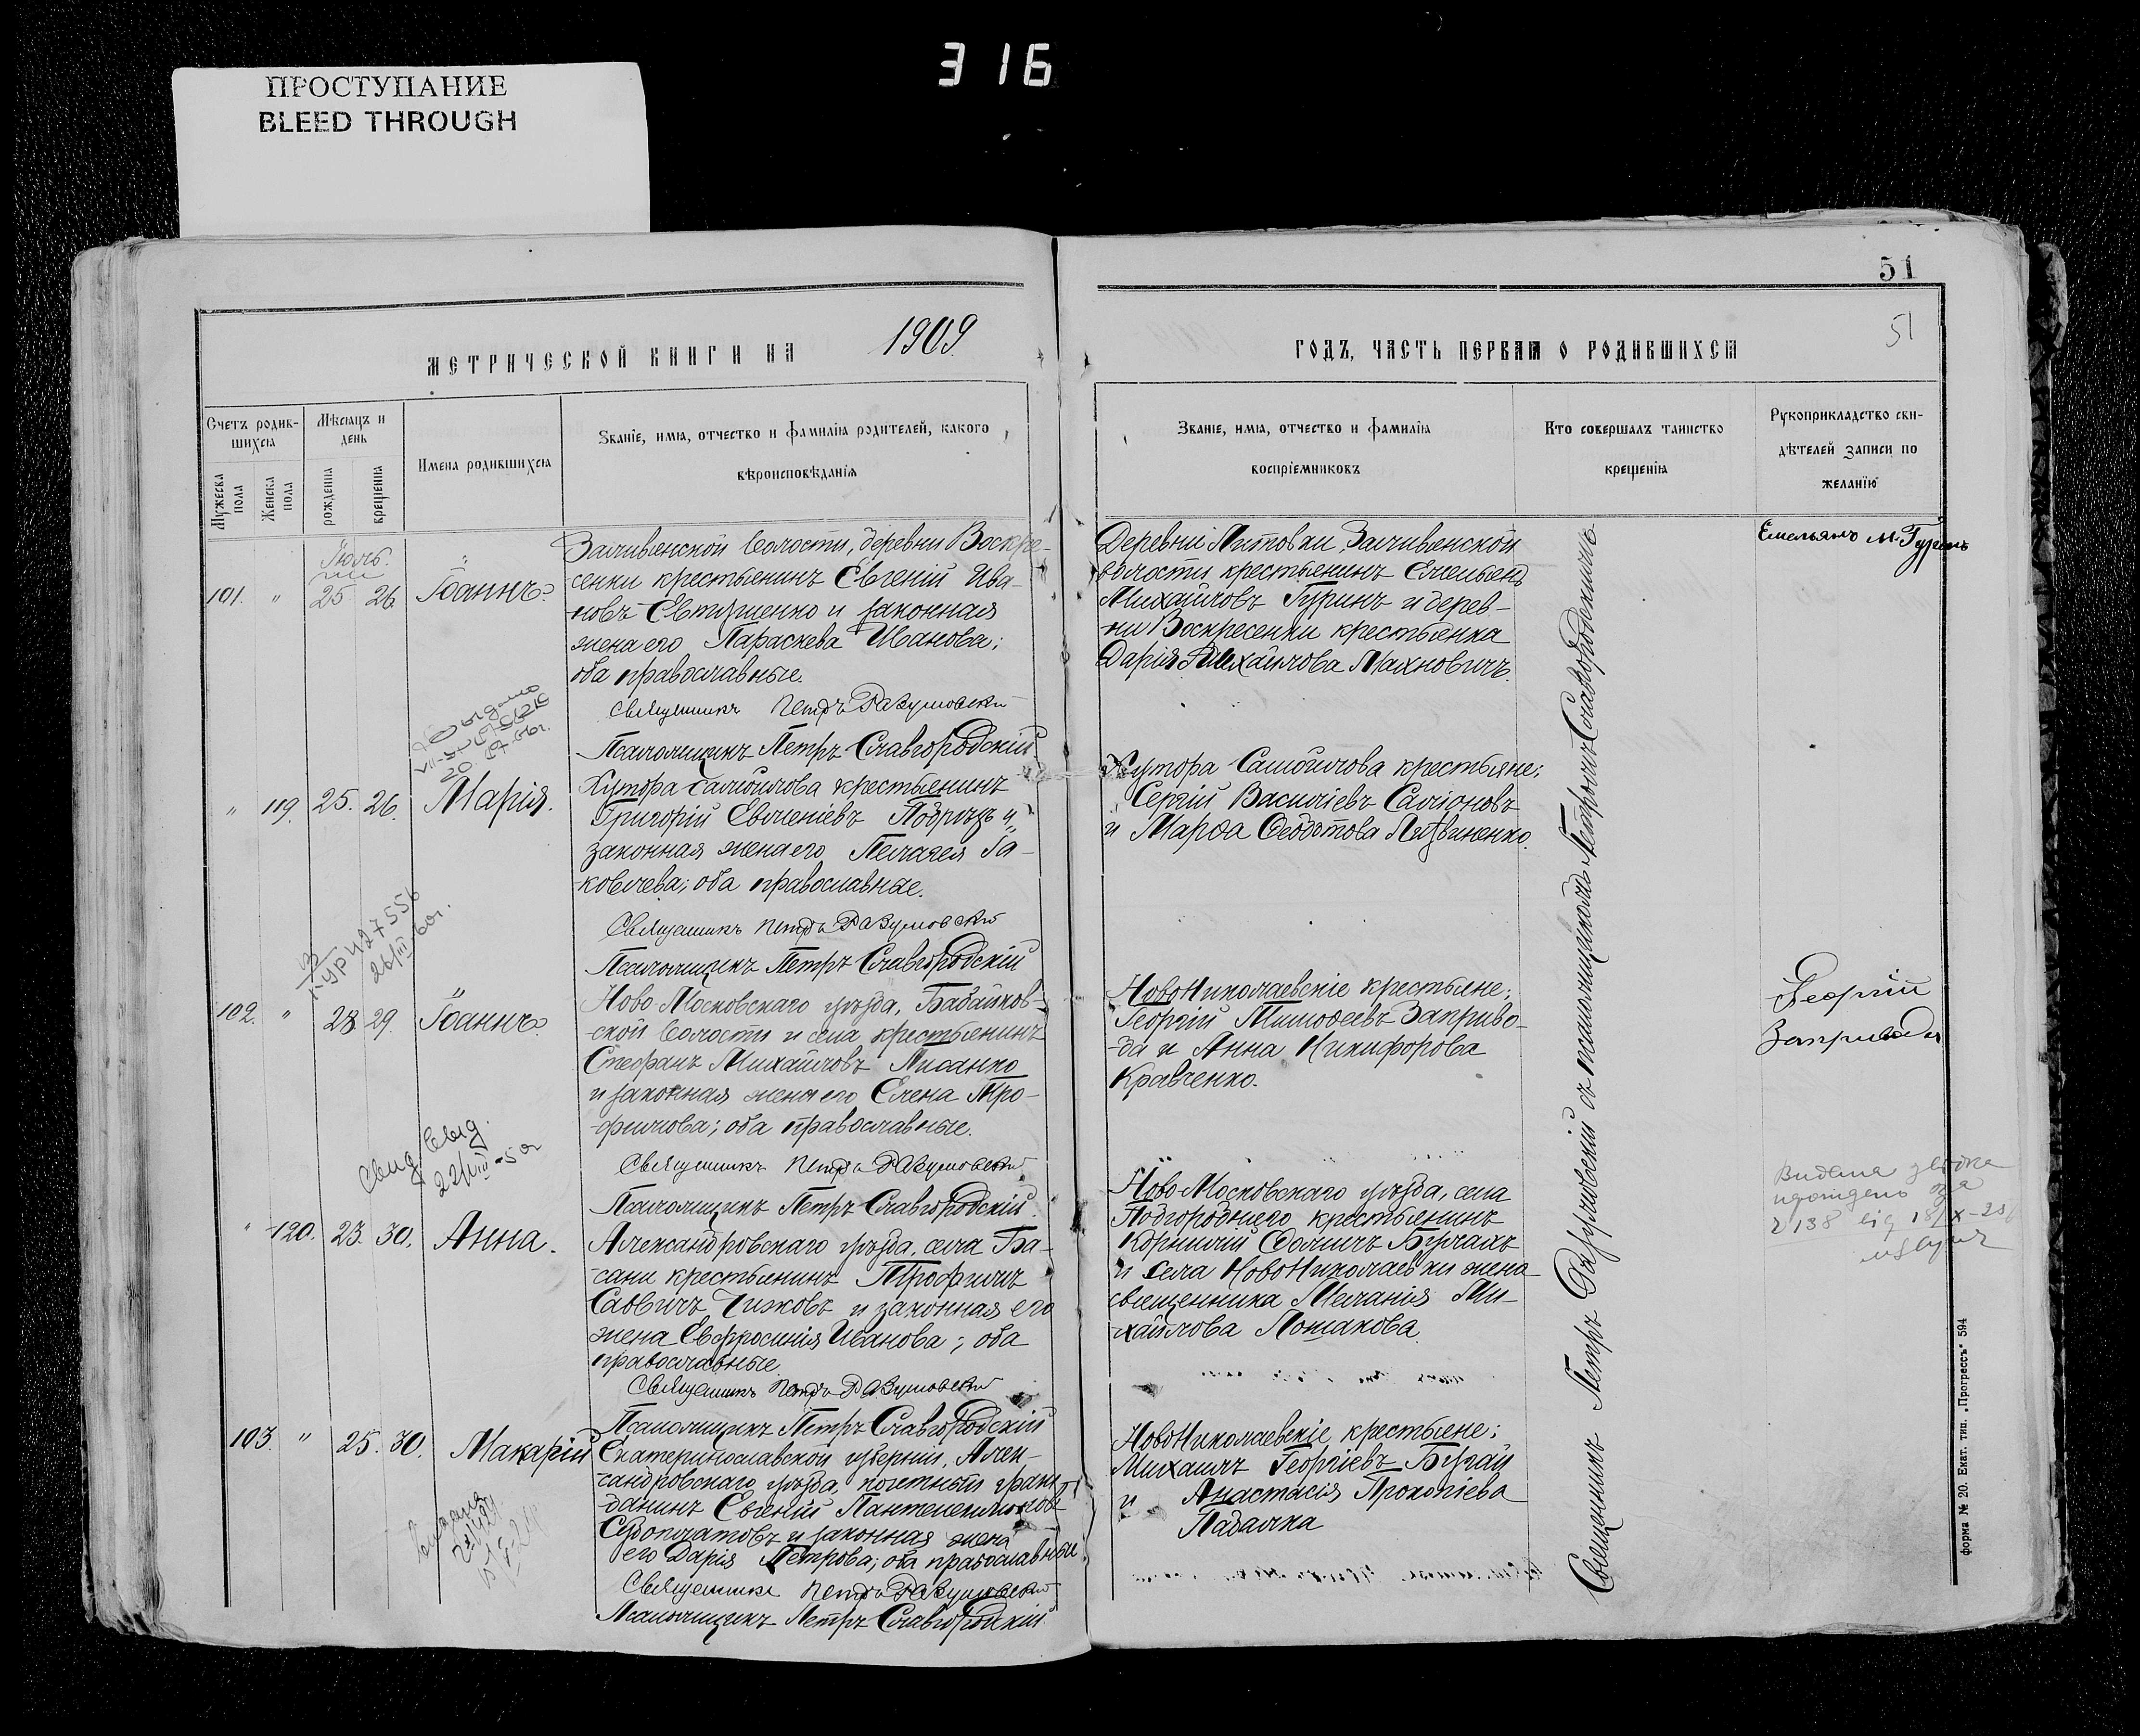 316
ПРОСТУПАНИЕ
BLEED THROUGH
51
51
МЕТРИЧЕСКОЙ КНИГИ НА 1909.
ГОДЪ, ЧАСТЬ ПЕРВАЯ О РОДИВШИХСЯ
Счетъ родив-
шихся
Мужеска
пола
Женска
пола
Мѣсяцъ и
день
рожденія
крещенія
Имена родившихся
Званіе, имя, отчество и фамилія родителей, какого
вѣроисповѣданія
Званіе, имя, отчество и фамилія
воспріемниковъ
Кто совершалъ таинство
крещенія
Рукоприкладство сви-
дѣтелей записи по
желанію
Іюль.
101. " 25 26 Іоаннъ.
Заливянской волости, деревни Воскре-
сенки крестьянинъ Евгеній Ива-
новъ Евтушенко и законная
жена его Параскева Иванова;
оба православные.
Священникъ Петръ Разумовскій
Псаломщикъ Петръ Славгородскій
Деревни Литовки, Заливянской
волости крестьянинъ Емельянъ
Михайловъ Гуринъ и дерев-
ни Воскресенки крестьянка
Дарія Михайлова Махновичъ.
Емельянъ М. Гуринъ
" 119. 25. 26. Марія.
Хутора Самойлова крестьянинъ
Григорій Евгеніевъ и
законная жена его Пелагея Іа-
ковлева; оба православные.
Священникъ Петръ Разумовскій
Псаломщикъ Петръ Славгородскій
Хутора Самойлова крестьяне:
Сергій Василіевъ
и Марфа Ѳеодотова Литвиненко.
102. " 28 29. Іоаннъ.
Ново-Московскаго уѣзда, Бабайков-
ской волости и села крестьянинъ
Стефанъ Михайловъ Лисанко
и законная жена его Елена Тро-
фимова; оба православные.
Священникъ Петръ Разумовскій
Псаломщикъ Петръ Славгородскій.
НовоНиколаевскіе крестьяне:
Георгій Тимофеевъ Заприво-
да и Анна Никифорова
Кравченко.
Георгій
Запривода
Свид выд.
" 120. 23. 30. Анна.
Александровскаго уѣзда, села Ба-
сани крестьянинъ Трофимъ
Саввичъ Чижовъ и законная его
жена Евфросинія Иванова; оба
православные
Священникъ Петръ Разумовскій
Псаломщикъ Петръ Славгородскій
Ново-Московскаго уѣзда, села
Подгороднего крестьянинъ
Корнилій Ѳомичъ
и села НовоНиколаевки жена
священника Меланія Ми-
хайлова Ломакова.
103. " 25. 30. Макарій
Екатеринославской губерніи, Алек-
сандровскаго уѣзда, почетный граж-
данинъ Евгеній Пантелеимоновъ
и законная жена
его Дарія Петрова; оба православные
Священникъ Петръ Разумовскій
Псаломщикъ Петръ Славгородскій
НовоНиколаевскіе крестьяне:
Михаилъ Георгіевъ Бугай
и Анастасія Прокопіева
Падалка
Священникъ Петръ Разумовскій съ псаломщикомъ Петромъ Славгородскимъ
форма № 20. Екат. тип. „Прогрессъ“ 594